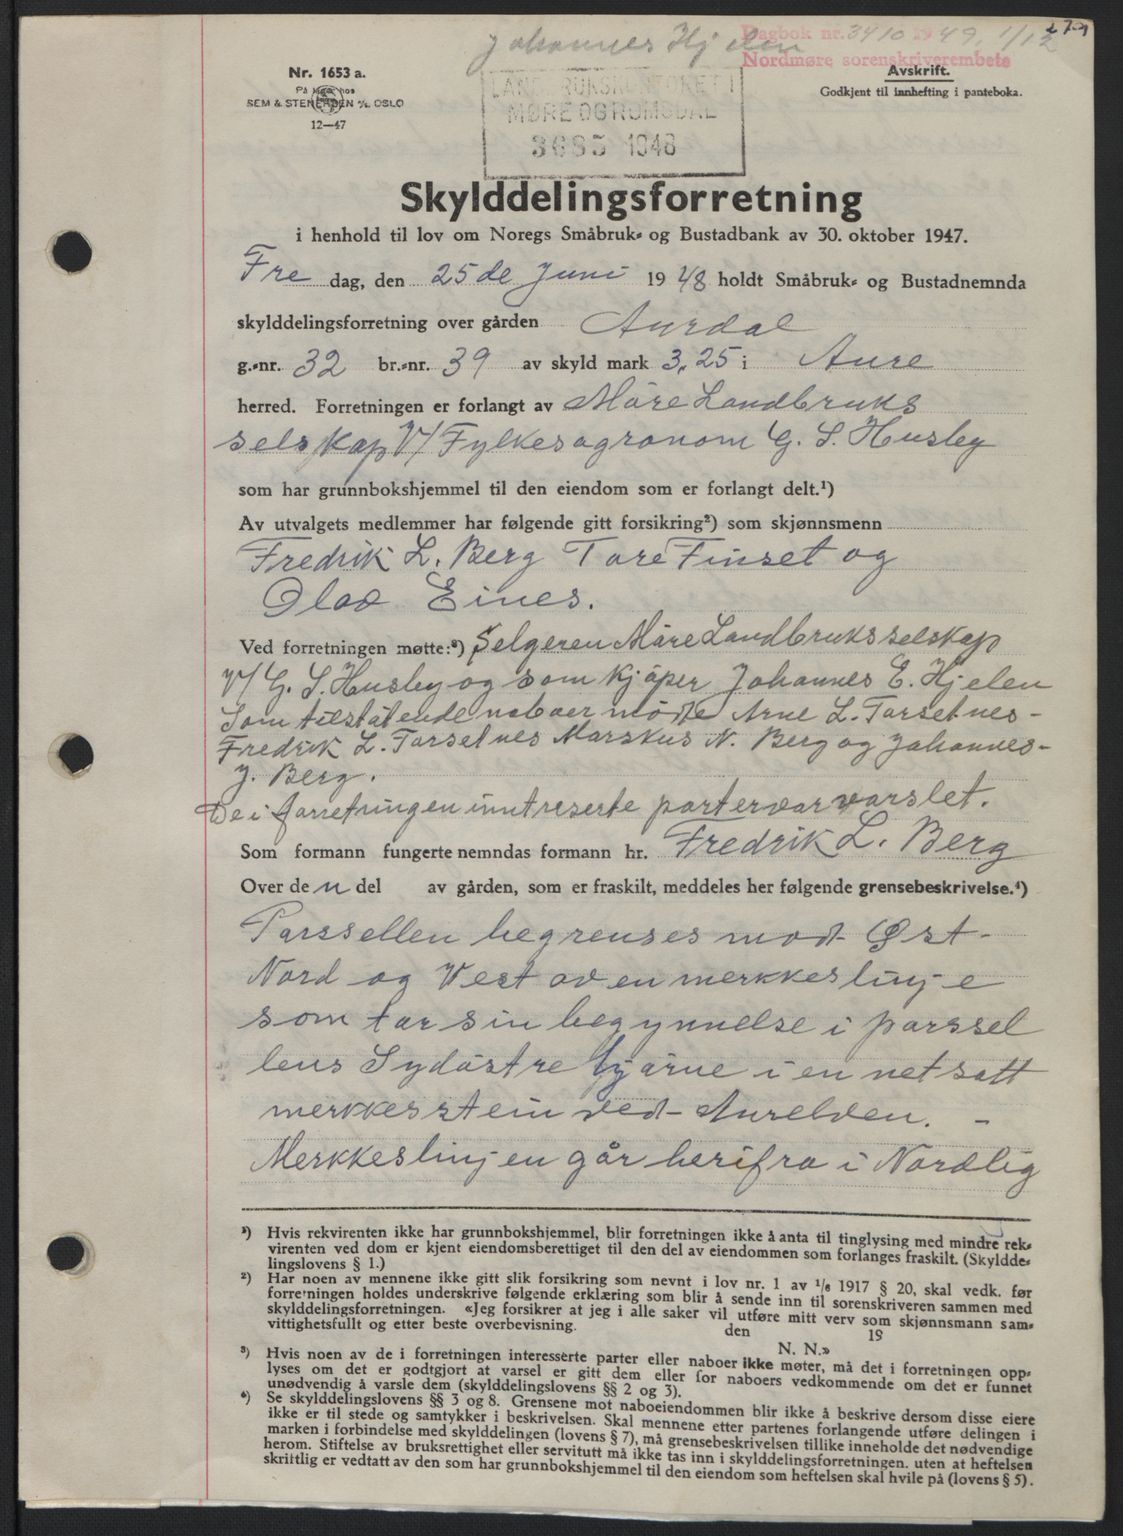 Johannes Hjelen
Dagbok nr. 3410 1949, 1/12
279
Nordmøre sorenskriverembete
Nr. 1653 a.
På lager hos
SEM & STENERSEN A/S, OSLO
12—47
LANDBRUKSKONTORET I
MØRE OG ROMSDAL
3695 1948
Avskrift.
Godkjent til innhefting i panteboka.
Skylddelingsforretning
i henhold til lov om Noregs Småbruk- og Bustadbank av 30. oktober 1947.
Fre dag, den 25 de Juni 1948 holdt Småbruk- og Bustadnemnda
skylddelingsforretning over gården Aurdal
g.-nr. 32 br.-nr. 39 av skyld mark 3,25 i Aure
herred. Forretningen er forlangt av Møre Landbruks
selskap V/ Fylkesagronom G. S. Husby
som har grunnbokshjemmel til den eiendom som er forlangt delt.¹)
Av utvalgets medlemmer har følgende gitt forsikring²) som skjønnsmenn
Fredrik L. Berg Tore Finset og
Olav Eines.
Ved forretningen møtte:³) Selgeren Møre Landbruksselskap
V/ G. S. Husby og som kjøper Johannes E. Hjelen
Som tilstøtende naboer møtte Arne L. Tarsetnes-
Fredrik L. Tarsetnes Marskus N. Berg og Johannes-
J. Berg.
De i forretningen inntreserte parter var varslet.
Som formann fungerte nemndas formann hr. Fredrik L. Berg
Over de n del av gården, som er fraskilt, meddeles her følgende grensebeskrivelse.⁴)
Parssellen begrenses mod Øst-
Nord og Vest av en merkkeslinje
som tar sin begynnelse i parssel
lens Sydøstre hjørne i en netsatt
merkkesstein ved Aurelven. -
Merkkeslinjen går herifra i Nordlig
¹) Hvis rekvirenten ikke har grunnbokshjemmel, blir forretningen ikke å anta til tinglysing med mindre rek-
virenten ved dom er kjent eiendomsberettiget til den del av eiendommen som forlanges fraskilt. (Skyldde-
lingslovens § 1.)
²) Har noen av mennene ikke gitt slik forsikring som nevnt i lov nr. 1 av 1/6 1917 § 20, skal vedk. før
forretningen holdes underskrive følgende erklæring som blir å sende inn til sorenskriveren sammen med
skylddelingsforretningen. «Jeg forsikrer at jeg i alle saker vil utføre mitt verv som skjønnsmann sam-
vittighetsfullt og etter beste overbevisning.
den 19
N. N.»
³) Hvis noen av de i forretningen interesserte parter eller naboer ikke møter, må det i forretningen opp-
lyses om det er godtgjort at varsel er gitt dem eller for naboers vedkommende om det er funnet
unødvendig å varsle dem (skylddelingslovens §§ 2 og 3).
⁴) Se skylddelingslovens §§ 3 og 8. Grensene mot naboeiendommen blir ikke å beskrive dersom disse eiere
ikke er til stede og samtykker i beskrivelsen. Skal mennene etter partenes forlangende utføre delingen i
marken i forbindelse med skylddelingen (lovens § 7), må grensebeskrivelsen tillike inneholde det nødvendige
herom. Stiftelse av bruksrettighet eller servitutt må ikke tas inn i skylddelingsforretningen. uten at heftelsen
skriftlig er vedtatt av den som har grunnbokshjemmel til den eiendom som heftelsen skal hvile på (lovens § 5).